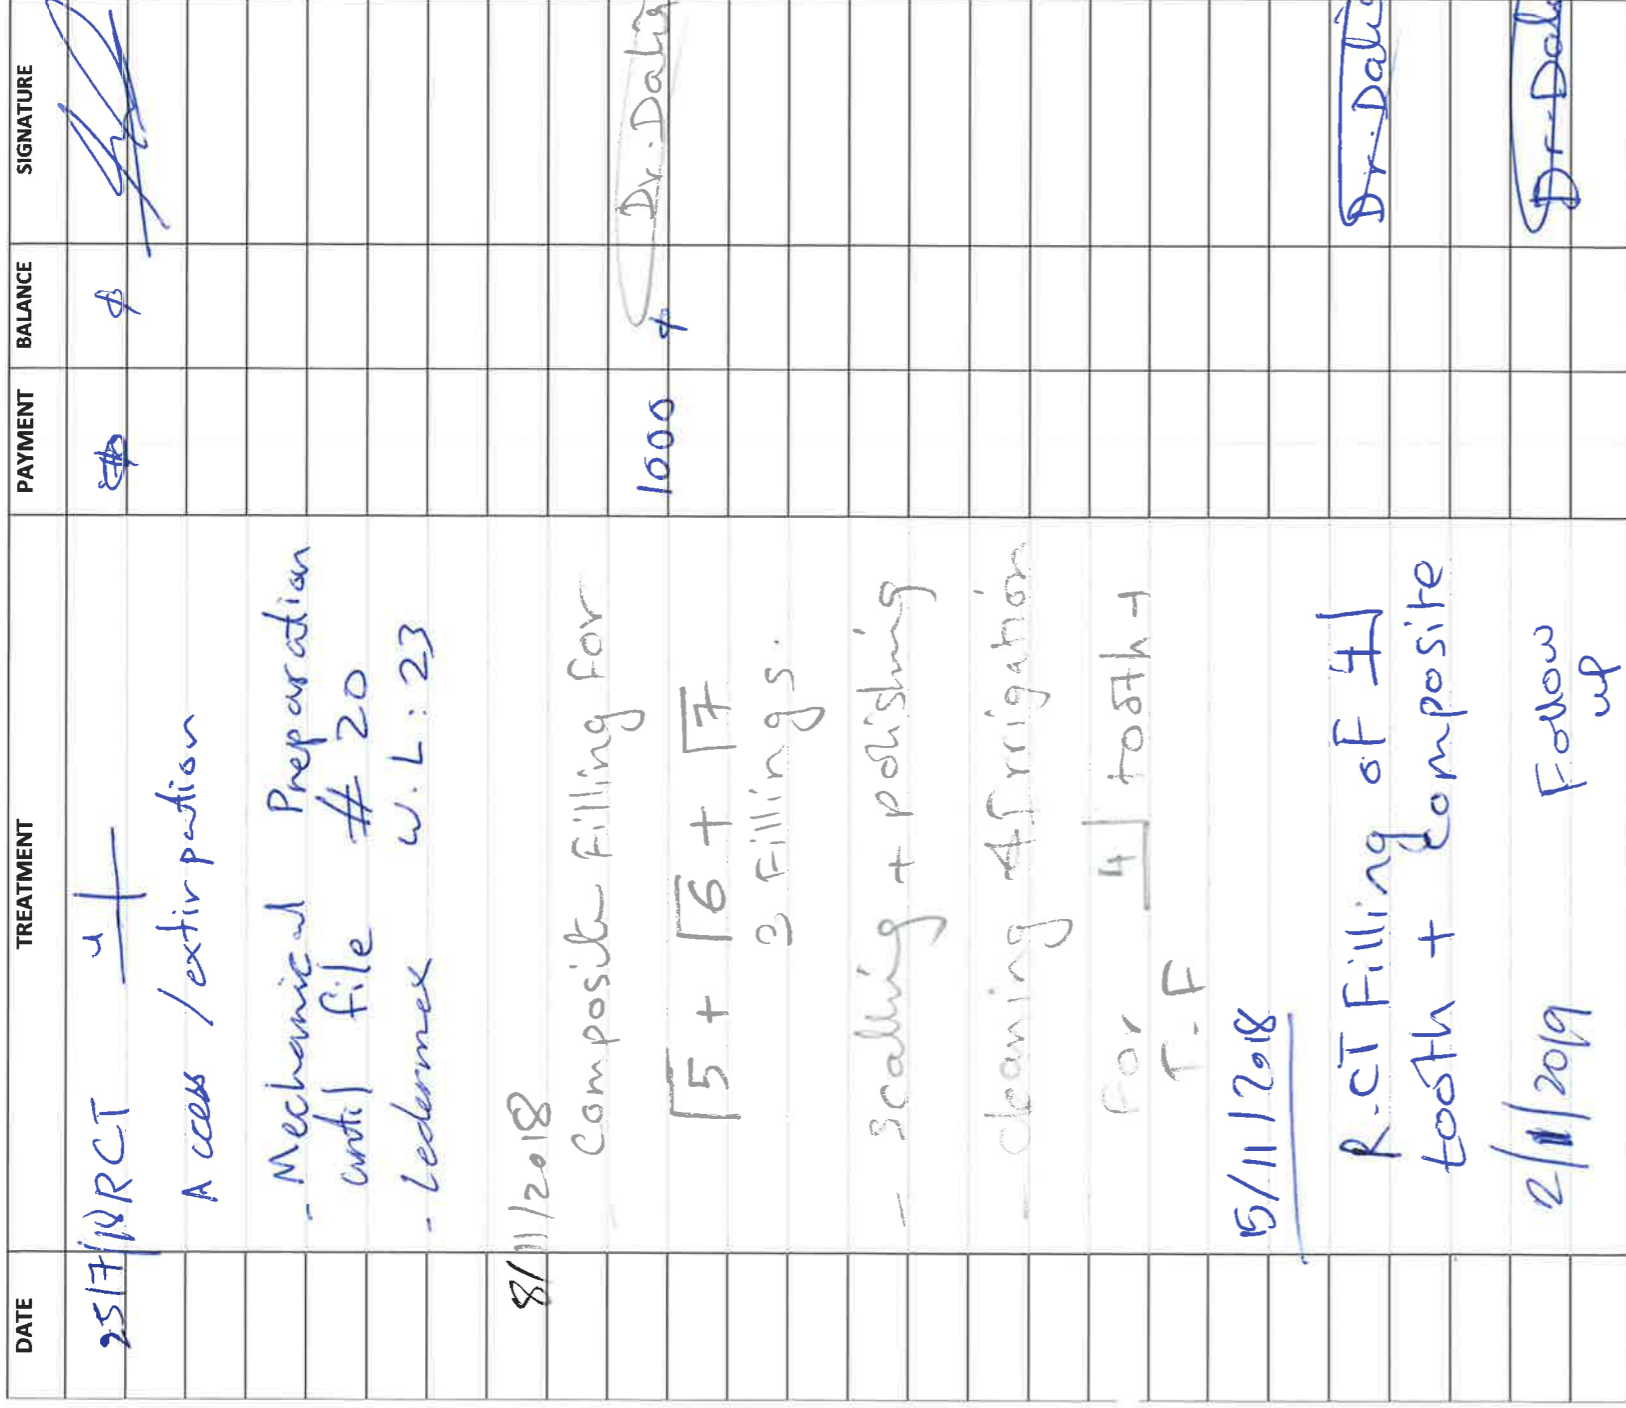 DATE TREATMENT PAYMENT BALANCE SIGNATURE
25/7/18 RCT 4
Access / extirpation
- Mechanical Preparation
until file # 20
- Ledermex W.L: 23
8/11/2018
Composite Filling For
5 + 6 + 7 1000 Dr. Dalia
3 Fillings.
- Scalling + polishing
- cleaning + Irrigation
For 4 tooth +
T.F
15/11/2018
R.CT Filling of 4 Dr. Dali
tooth + Composite
2/11/2019 Follow Dr. Dal
up